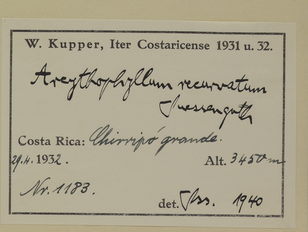 W. Kupper, Iter Costaricense 1931 u. 32.
Arcythophyllum recurvatum
Suessenguth
Costa Rica: Chirripó grande.
29.4. 1932. Alt. 3450 m
Nr. 1183.
det. Sss. 1940